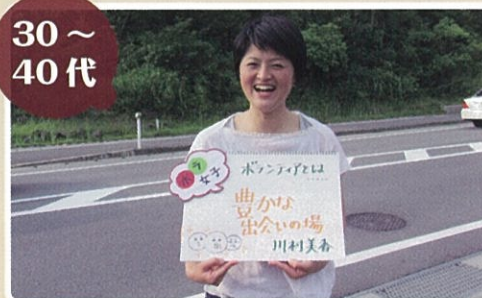 30～
40代
女子
ボランティアとは
……
豊かな
出会いの場
川村美香